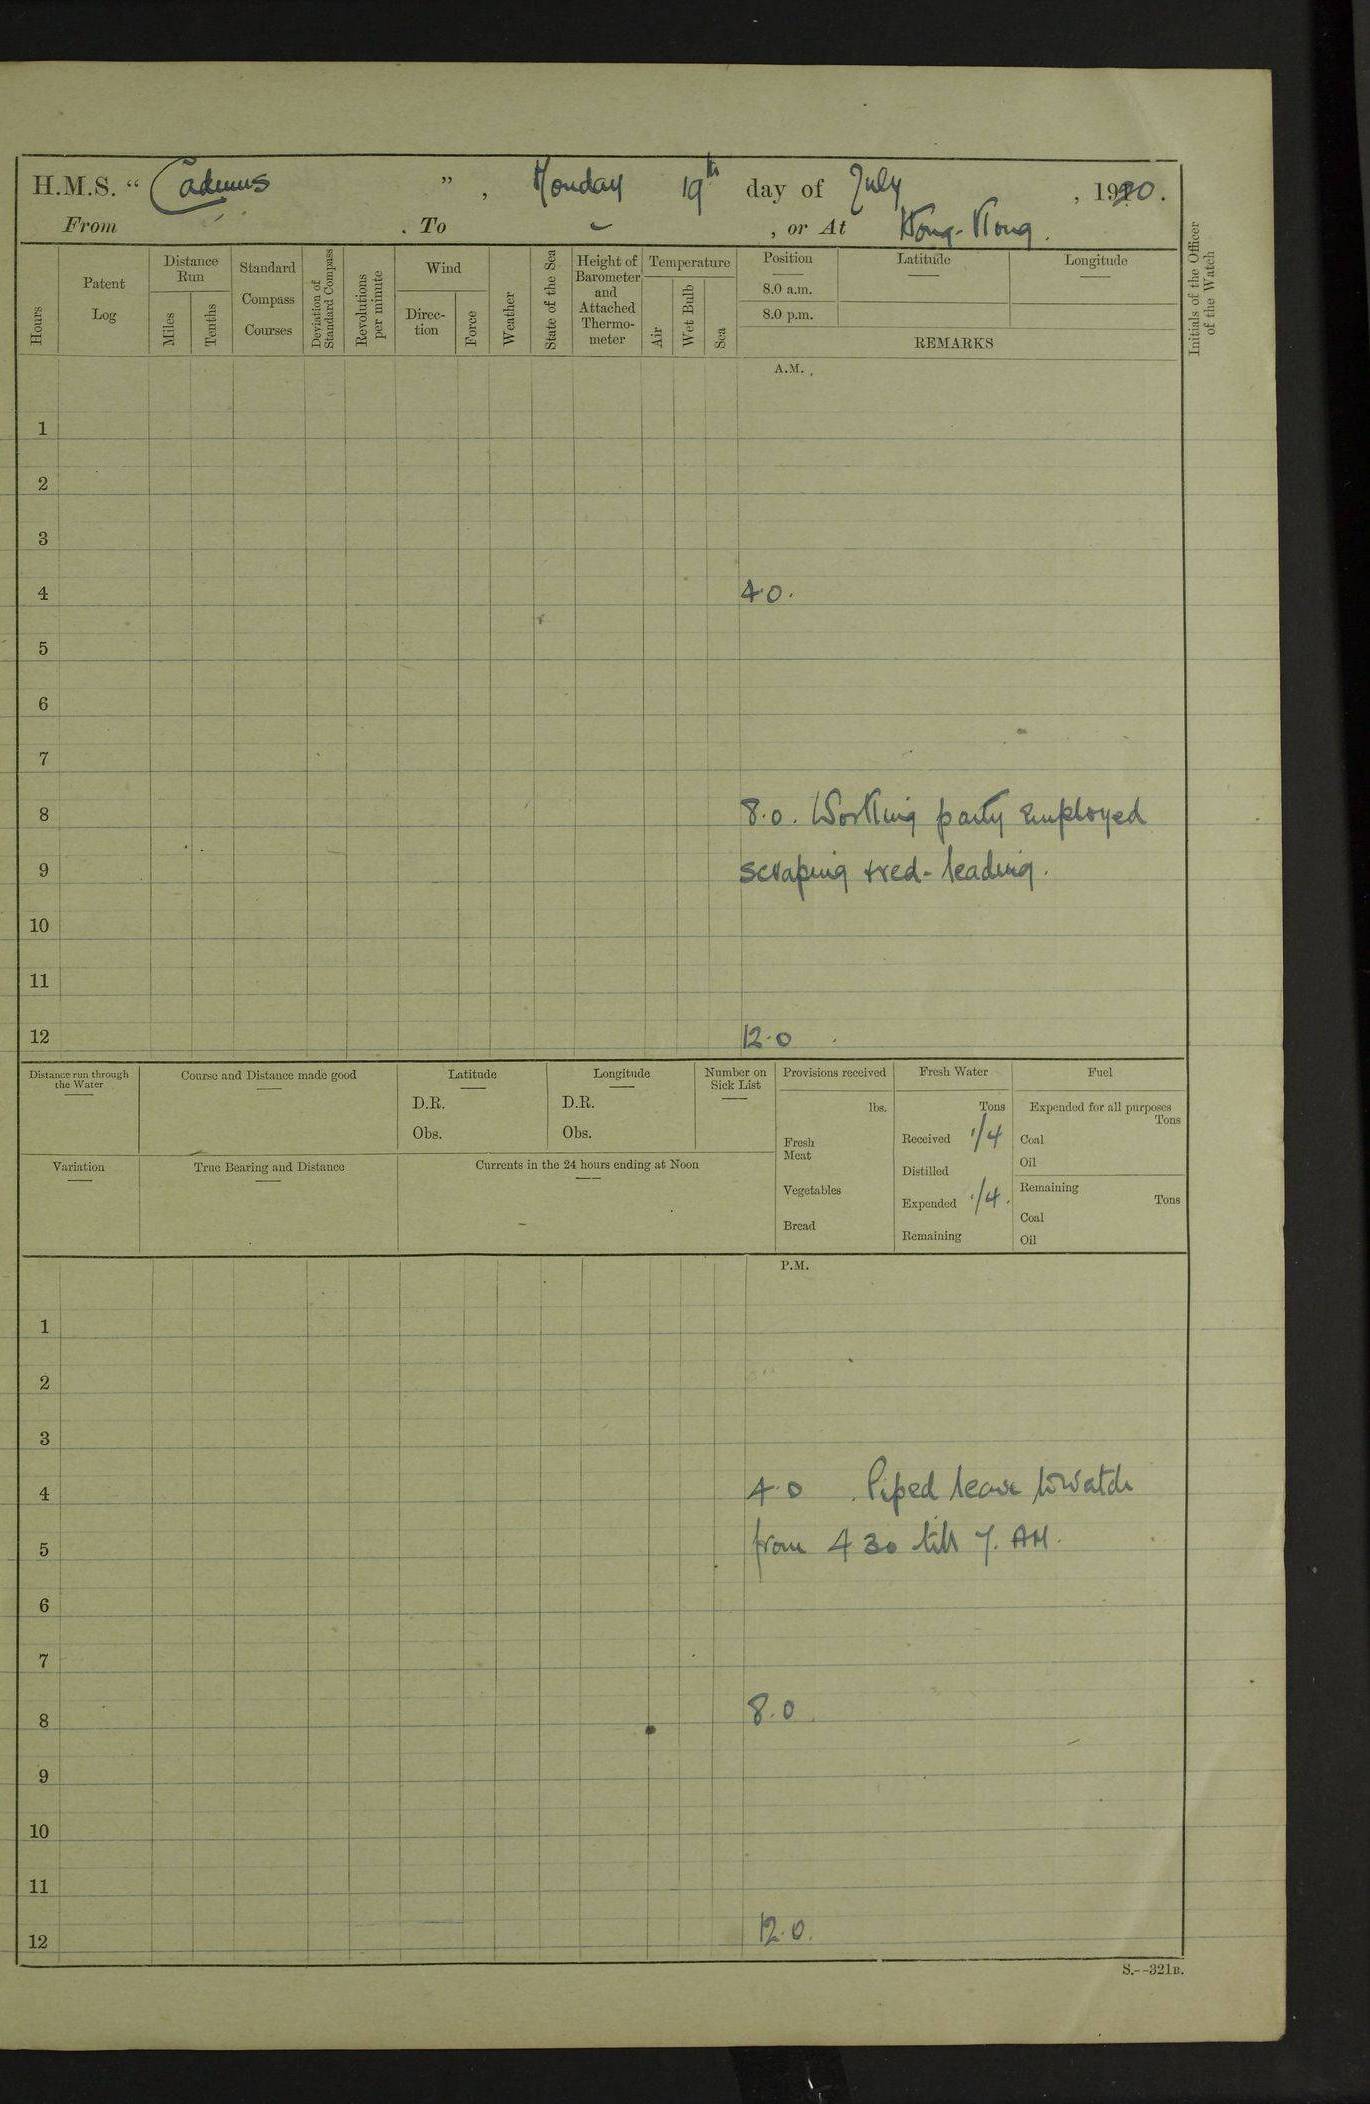 H.M.S. “ Cadmus ” , Monday 19th day of July , 1920.
From . To – , or At Hong-Kong.
Hours
Patent Log
Distance Run
Miles
Tenths
Standard Compass Courses
Deviation of Standard Compass
Revolutions per minute
Wind
Direc-tion
Force
Weather
State of the Sea
Height of Barometer and Attached Thermo-meter
Temperature
Air
Wet Bulb
Sea
Position
8.0 a.m.
8.0 p.m.
Latitude
Longitude
REMARKS
Initials of the Officer of the Watch
A.M.
1
2
3
4 4.0.
5
6
7
8 8.0. Working party employed
9 scraping & red-leading.
10
11
12 12.0
Distance run through the Water
Course and Distance made good
Latitude
D.R.
Obs.
Longitude
D.R.
Obs.
Number on Sick List
Variation
True Bearing and Distance
Currents in the 24 hours ending at Noon
Provisions received
lbs.
Fresh Meat
Vegetables
Bread
Fresh Water
Tons
Received 1/4
Distilled
Expended 1/4.
Remaining
Fuel
Expended for all purposes
Tons
Coal
Oil
Remaining
Tons
Coal
Oil
P.M.
1
2
3
4 4.0 . Piped leave to watch
5 from 4 30 till 7. AM.
6
7
8 8.0.
9
10
11
12 12.0.
S.--321B.